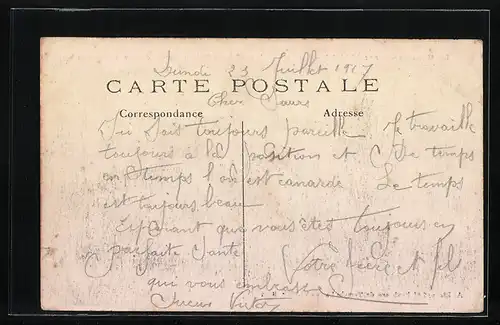 Lundi 23 Juillet 1917
CARTE POSTALE
Correspondance Adresse
Cher
toujours pareille Je travaille
toujours à la position et De temps
en temps l'on est canardé Le temps
est toujours beau
Espérant que vous êtes toujours en
parfaite Santé Votre frère et fil
qui vous embrasse